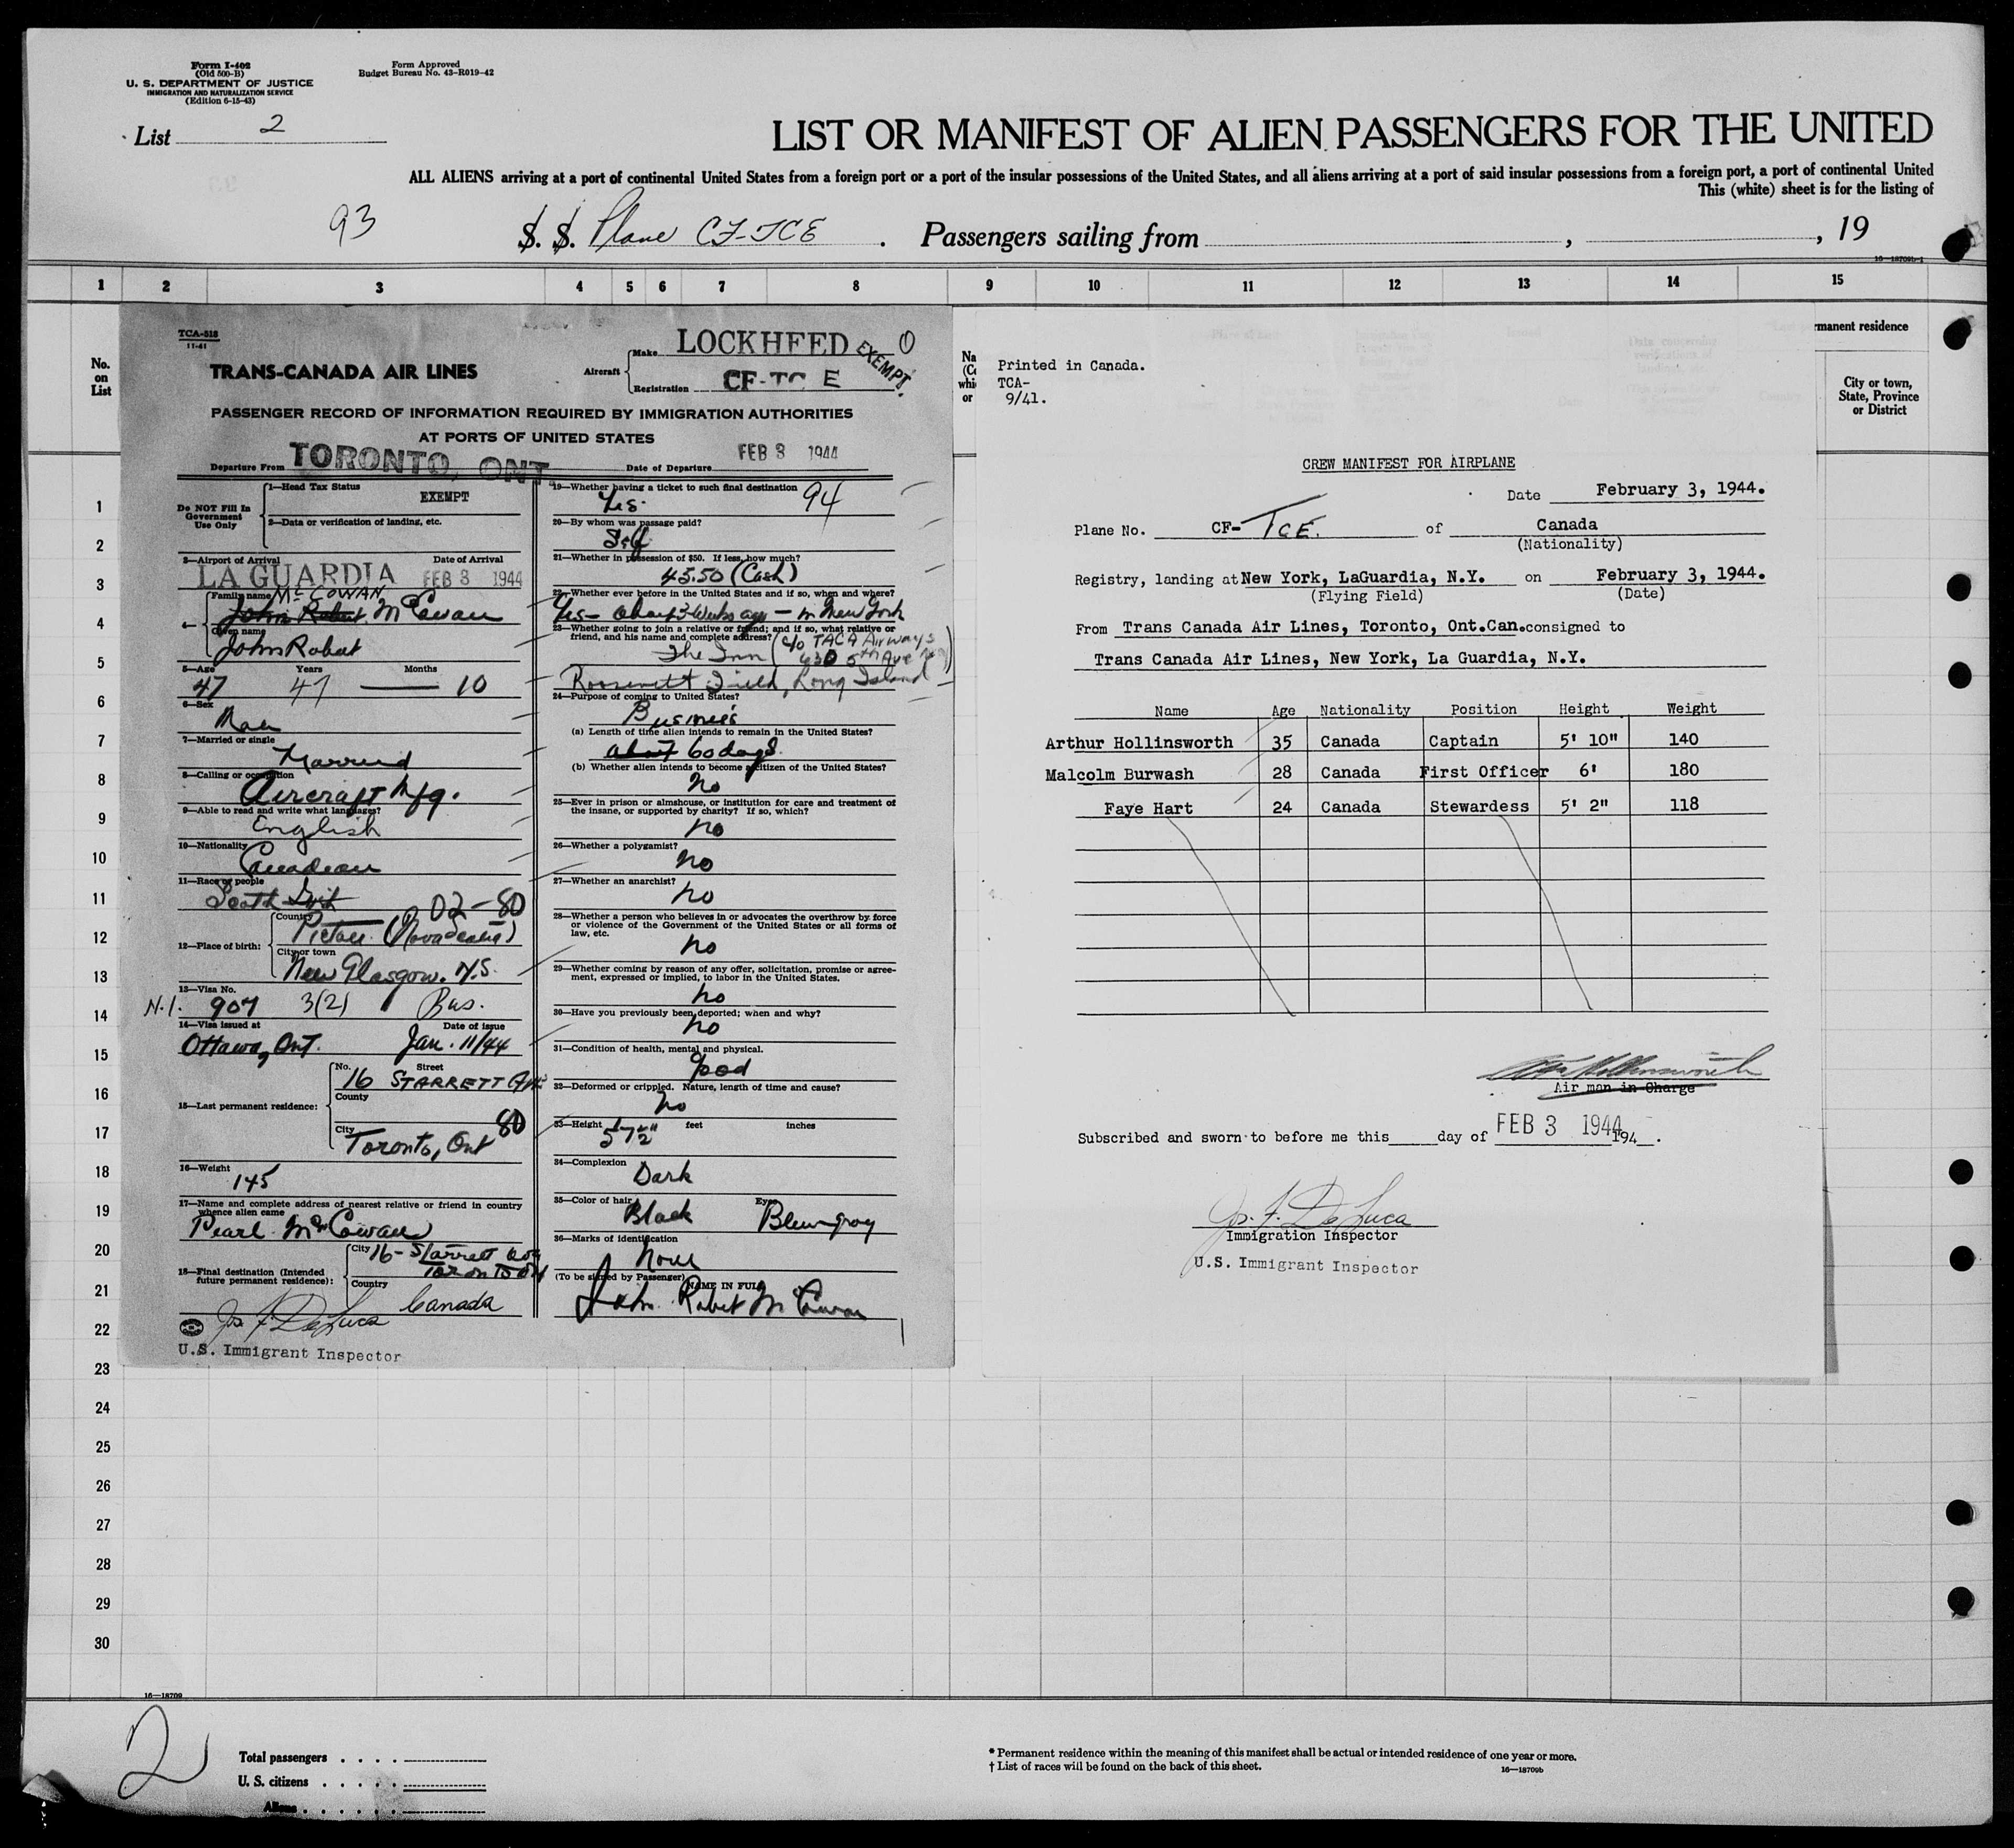 Form I-402
(Old 500-B)
U. S. DEPARTMENT OF JUSTICE
IMMIGRATION AND NATURALIZATION SERVICE
(Edition 6-15-43)
Form Approved
Budget Bureau No. 43-R019-42
List 2
LIST OR MANIFEST OF ALIEN PASSENGERS FOR THE UNITED
ALL ALIENS arriving at a port of continental United States from a foreign port or a port of the insular possessions of the United States, and all aliens arriving at a port of said insular possessions from a foreign port, a port of continental United
This (white) sheet is for the listing of
93
S. S. Plane CF-TCE . Passengers sailing from , , 19
16—18709b-1
1 2 3 4 5 6 7 8 9 10 11 12 13 14 15
No.
on
List
TCA-518
11-41
TRANS-CANADA AIR LINES
Aircraft
Make LOCKHEED
Registration CF-TC E
EXEMPT.
0
PASSENGER RECORD OF INFORMATION REQUIRED BY IMMIGRATION AUTHORITIES
AT PORTS OF UNITED STATES
Departure From TORONTO, ONT
Date of Departure FEB 3 1944
Do NOT Fill In
Government
Use Only
1—Head Tax Status
EXEMPT
2—Data or verification of landing, etc.
3—Airport of Arrival
Date of Arrival
LA GUARDIA FEB 3 1944
4—
Family name McCOWAN
John Robert McCowan
Given name
John Robert
5—Age Years Months
47 47 — 10
6—Sex
Male
7—Married or single
Married
8—Calling or occupation
Aircraft Mfg.
9—Able to read and write what languages?
English
10—Nationality
Canadian
11—Race or people
Scotch
02-80
12—Place of birth:
County
Pictou (Nova Scotia)
City or town
New Glasgow. N.S.
13—Visa No.
N.I. 907 3(2) Bus.
14—Visa issued at
Date of issue
Ottawa, Ont. Jan. 11/44
15—Last permanent residence:
No. Street
16 STARRETT Ave
County
80
City
Toronto, Ont
16—Weight
145
17—Name and complete address of nearest relative or friend in country
whence alien came
Pearl McCowan
18—Final destination (Intended
future permanent residence):
City 16- Starrett Ave
Toronto Ont
Country
Canada
Jos F DeLuca
U.S. Immigrant Inspector
19—Whether having a ticket to such final destination
Yes. 94
20—By whom was passage paid?
Self
21—Whether in possession of $50. If less, how much?
45.50 (Cash)
22—Whether ever before in the United States and if so, when and where?
Yes - about 3 weeks ago - in New York
23—Whether going to join a relative or friend; and if so, what relative or
friend, and his name and complete address?
The Inn (c/o TACA Airways
630 5th Ave NY)
Roosevelt Field, Long Island
24—Purpose of coming to United States?
Business
(a) Length of time alien intends to remain in the United States?
about 60 days.
(b) Whether alien intends to become a citizen of the United States?
No
25—Ever in prison or almshouse, or institution for care and treatment of
the insane, or supported by charity? If so, which?
no
26—Whether a polygamist?
no
27—Whether an anarchist?
no
28—Whether a person who believes in or advocates the overthrow by force
or violence of the Government of the United States or all forms of
law, etc.
no
29—Whether coming by reason of any offer, solicitation, promise or agree-
ment, expressed or implied, to labor in the United States.
no
30—Have you previously been deported; when and why?
no
31—Condition of health, mental and physical.
good
32—Deformed or crippled. Nature, length of time and cause?
no
33—Height feet inches
5' 7½"
34—Complexion
Dark
35—Color of hair Eyes
Black Blue-gray
36—Marks of identification
None
(To be signed by Passenger) NAME IN FULL
John Robert McCowan
Na
(Co
whi
or
Printed in Canada.
TCA-
9/41.
CREW MANIFEST FOR AIRPLANE
Date February 3, 1944.
Plane No. CF-TCE. of Canada
(Nationality)
Registry, landing at New York, LaGuardia, N.Y. on February 3, 1944.
(Flying Field) (Date)
From Trans Canada Air Lines, Toronto, Ont.Can. consigned to
Trans Canada Air Lines, New York, La Guardia, N.Y.
Name Age Nationality Position Height Weight
Arthur Hollinsworth 35 Canada Captain 5' 10" 140
Malcolm Burwash 28 Canada First Officer 6' 180
Faye Hart 24 Canada Stewardess 5' 2" 118
Hollinsworth
Air man in Charge
Subscribed and sworn to before me this day of FEB 3 1944 194 .
Jos. F. DeLuca
Immigration Inspector
U.S. Immigrant Inspector
rmanent residence
City or town,
State, Province
or District
1
2
3
4
5
6
7
8
9
10
11
12
13
14
15
16
17
18
19
20
21
22
23
24
25
26
27
28
29
30
16—18709
2
Total passengers . . . .
U. S. citizens . . . . .
Aliens . . . . . .
* Permanent residence within the meaning of this manifest shall be actual or intended residence of one year or more.
† List of races will be found on the back of this sheet.
16—18709b